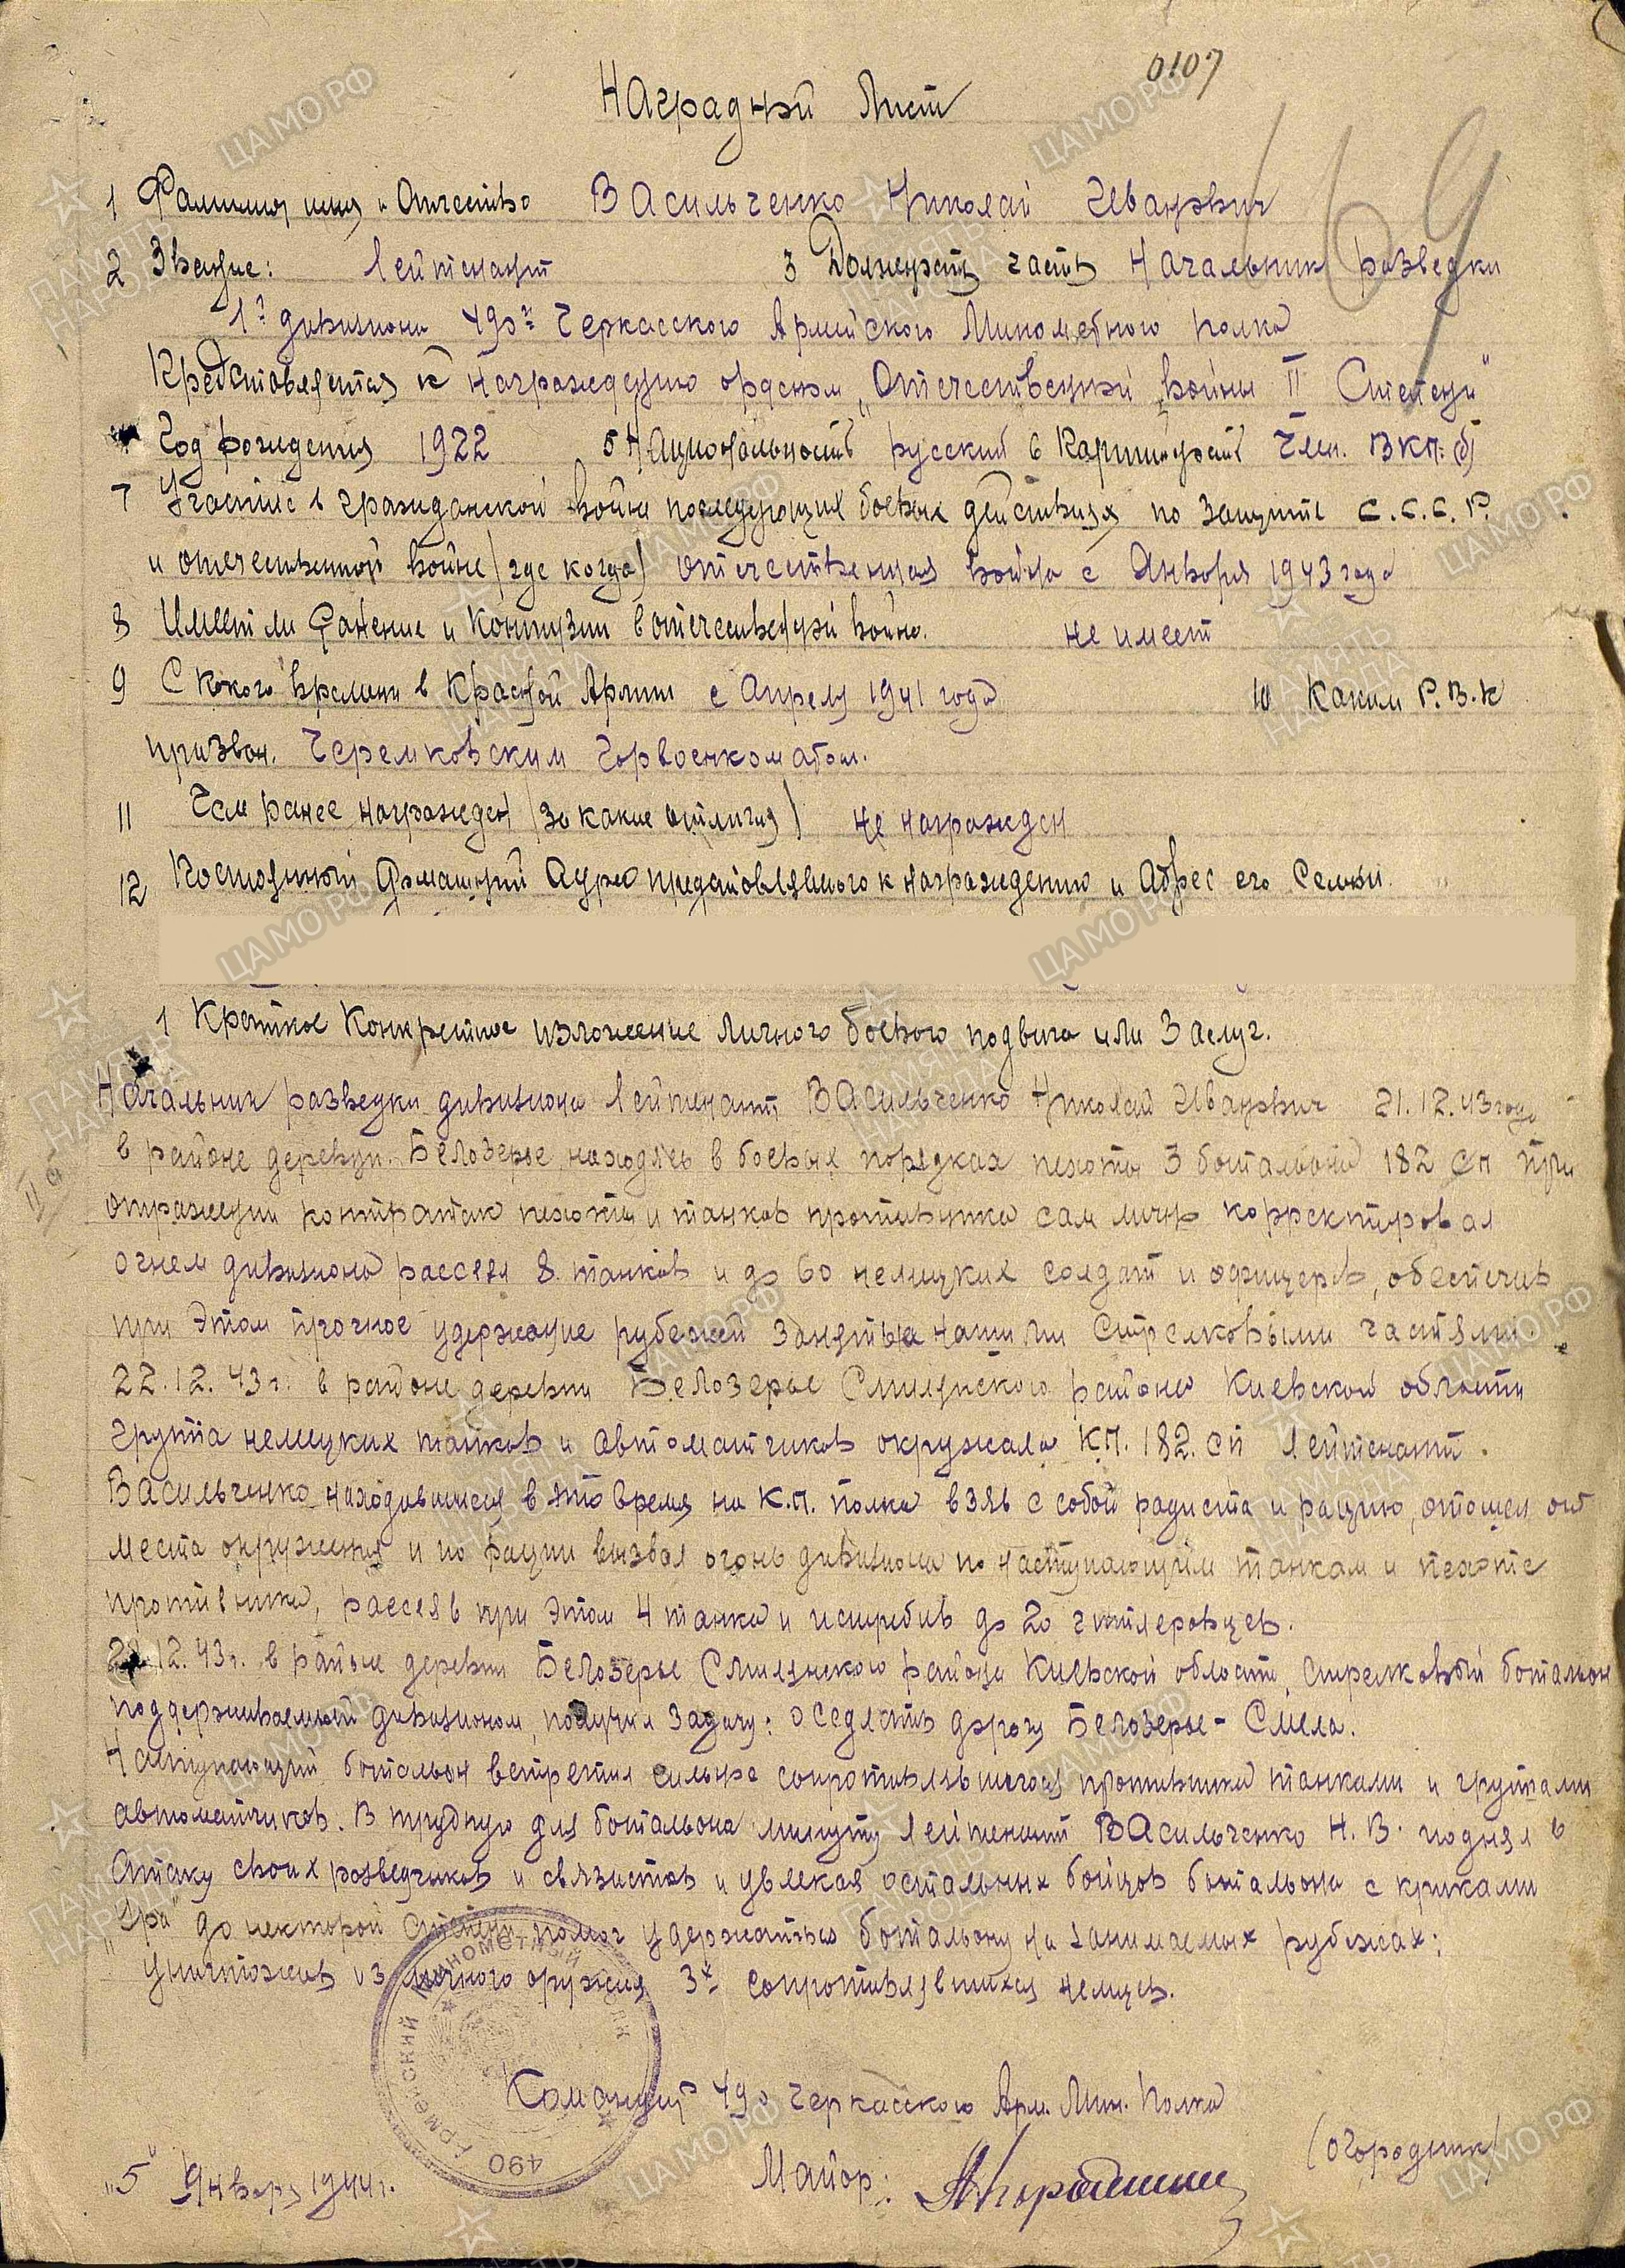 0107
Наградной Лист
169
1 Фамилия имя и Отчество Васильченко Николай Иванович
2 Звание: Лейтенант 3 Должность часть Начальник разведки
1го дивизиона 490го Черкасского Армейского Минометного полка
Представляется к награждению орденом „Отечественной войны II Степени"
4 Год рождения 1922 5 Национальность русский 6 Партийность Член ВКП.(б)
7 Участие в гражданской войне последующих боевых действиях по защите С.С.С.Р.
и отечественной войне (где когда) отечественная война с Января 1943 года
8 Имеет ли Ранение и Контузии в отечественной войне. не имеет
9 С какого времени в Красной Армии с Апреля 1941 года 10 Каким Р.В.К
призван. Черемховским Горвоенкоматом.
11 Чем ранее награжден (за какие отличия) не награжден
12 Постоянный Домашний Адрес представляемого к награждению и Адрес его Семьи.
1 Краткое Конкретное изложение личного боевого подвига или Заслуг.
Начальник разведки дивизиона Лейтенант Васильченко Николай Иванович 21.12.43 года
в районе деревни Белозерье находясь в боевых порядках пехоты 3 батальона 182 СП при
отражении контратак пехоты и танков противника сам лично корректировал
огнем дивизиона рассеял 8 танков и до 60 немецких солдат и офицеров, обеспечив
при этом прочное удержание рубежей занятых нашими Стрелковыми частями.
22.12.43 г. в районе деревни Белозерье Смилянского района Киевской области
группа немецких танков и автоматчиков окружала К.П. 182. СП Лейтенант
Васильченко находившийся в это время на К.П. полка взяв с собой радиста и рацию, отошел от
места окружения и по рации вызвал огонь дивизиона по наступающим танкам и пехоте
противника, рассеяв при этом 4 танка и истребив до 20 гитлеровцев.
12.43г. в районе деревни Белозерье Смилянского района Киевской области, стрелковый батальон
поддерживаемый дивизионом, получил задачу: оседлать дорогу Белозерье - Смела.
Наступающий батальон встретил сильно сопротивлявшегося противника танками и группами
автоматчиков. В трудную для батальона минуту Лейтенант Васильченко Н. В. поднял в
Атаку своих разведчиков и связистов и увлекая остальных бойцов батальона с криками
„Ура" до некторой степени помог удержаться батальону на занимаемых рубежах;
уничтожив из личного оружия 3х сопротивлявшихся немцев.
490 Армейский минометный полк
Командир 490 Черкасского Арм. Мин. Полка
Майор: (Огородник)
„5" Января 1944г.
ЦАМО РФ
ПАМЯТЬ НАРОДА